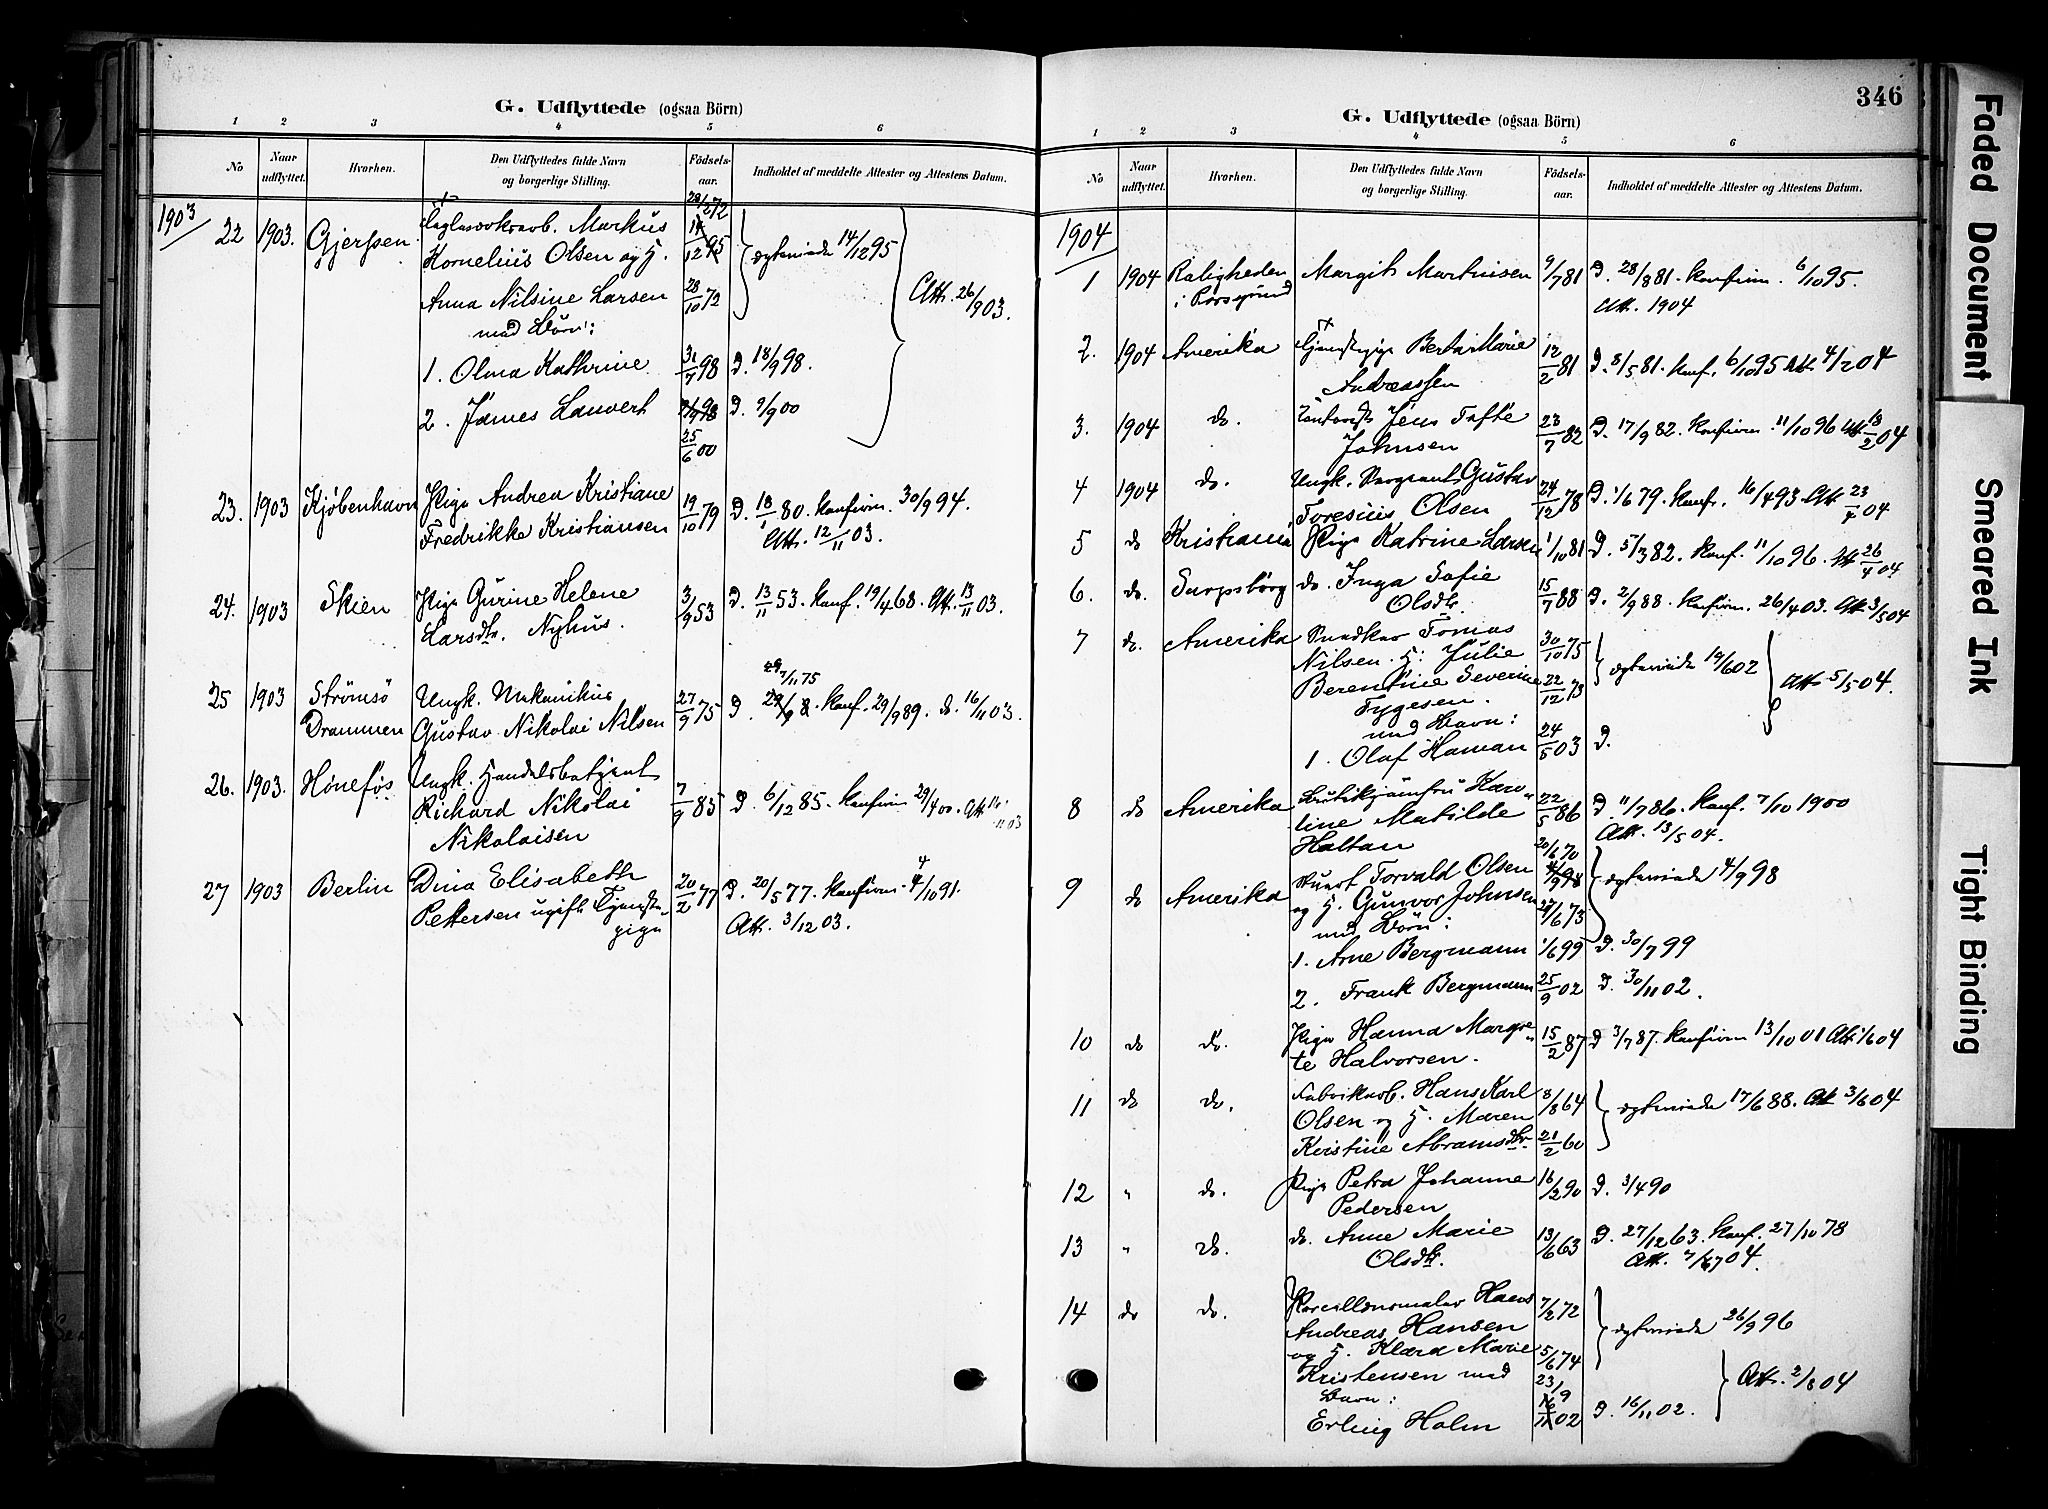 G. Udflyttede (ogsaa Börn)
1 2 3 4 5 6
No Naar udflyttet. Hvorhen. Den Udflyttedes fulde Navn og borgerlige Stilling. Födselsaar. Indholdet af meddelte Attester og Attestens Datum.
1903
22 1903. Gjerpen. Markus 29/2 72
Kornelius Olsen og H. ægteviede 14/12 95
Anna Nilsine Larsen 28/10 72 Att. 26/9 03.
med Børn:
1. Olma Kathrine 31/7 98 D. 18/9 98.
2. James Lauvert D. 9/9 00
25/6 00
23. 1903 Kjøbenhavn Pige Andrea Kristiane 19/10 79 D. 18/1 80. konfirm. 30/9 94.
Fredrikke Kristiansen Att. 12/11 03.
24. 1903 Skien Pige Gurine Helene 3/9 53 D. 13/11 53. konf. 19/4 68. Att. 13/11 03.
Larsdtr. Nyhus.
7/11 75
25 1903 Strømsö Ungk. Mekanikus 27/9 75 D. konf. 29/9 89. do. 16/11 03.
Drammen Gustav Nikolai Nilsen
26. 1903. Hönefos Ungk. Handelsbetjent 7/9 85 D. 6/12 85. konfirm 29/4 00. Att 16/11 03
Richard Nikolai
Nikolaisen
27 1903 Berlin Dina Elisabeth 20/2 77 D. 20/5 77. konfirm. 4/10 91.
Pettersen ugift Tjenste- Att. 3/12 03.
pige
346
G. Udflyttede (ogsaa Börn)
1 2 3 4 5 6
No Naar udflyttet. Hvorhen. Den Udflyttedes fulde Navn og borgerlige Stilling. Födselsaar. Indholdet af meddelte Attester og Attestens Datum.
1904
1 1904 Raligheden Margit Martinsen 9/7 81 D. 28/8 81. konfirm. 6/10 95.
i Porsgrund Att. 1904
2. 1904 Amerika Tjenstepige Berta Marie 12/2 81 D. 8/5 81. konf. 6/10 95 Att. 4/2 04
Andreassen
3. 1904 do. Kontorist Jens Tofte 23/7 82 D. 17/9 82. konfirm. 11/10 96 Att. 18/2 04
Johnsen
4 1904 do. Ungk. Sergeant Gustav 24/12 78 D. 1/6 79. konf. 16/4 93. Att 23/4 04
Toresius Olsen
5 do Kristiania Pige Katrine Larsen 1/10 81 D. 5/3 82. konf. 11/10 96. Att 26/4 04
6. do. Sarpsborg do. Inga Sofie 15/7 88 D. 2/9 88. konfirm. 26/4 03. Att. 3/5 04
Olsdtr.
7 do. Amerika Snedker Tomas 30/10 75
Nilsen. H: Julie ægteviede 19/6 02
Berentine Severine 22/12 73 Att. 5/5 04.
Tygesen.
med Barn:
1. Olaf Haman 24/5 03 D.
8 do Amerika Butikjomfru Karo- 22/5 86 D. 11/7 86. konf. 7/10 1900
line Matilde Att. 13/5 04.
Haltan
9 do Amerika Torvald Olsen 20/6 70 ægteviede 4/9 98
og H. Gunvor Johnsen 27/6 73
med Børn:
1. Arne Bergmann 1/6 99 D. 30/7 99
2. Frank Bergmann 25/9 02 D. 30/11 02.
10 do do. Pige Hanna Margre- 15/2 87 D 3/7 87. konfirm 13/10 01 Att 1/6 04
te Halvorsen.
11 do do. Fabrikarb. Hans Karl 8/8 64
Olsen og H. Maren ægteviede 17/6 88. Att 3/6 04
Kristine Abramsdtr. 21/2 60
12 " do. Pige Petra Johanne 16/2 90 D. 3/4 90
Pedersen
13 " do. do. Anne Marie 13/6 63 D. 27/12 63. konf. 27/10 78
Olsdtr. Att. 7/6 04.
14 do do. Porcellænsmaler Hans 7/2 72
Andreas Hansen ægteviede 26/9 96
og H. Klara Marie 5/6 74
Kristensen med 23/9 Att. 2/8 04
Barn:
Erling Holm 02 D. 16/11 02.
Faded Document
Smeared Ink
Tight Binding